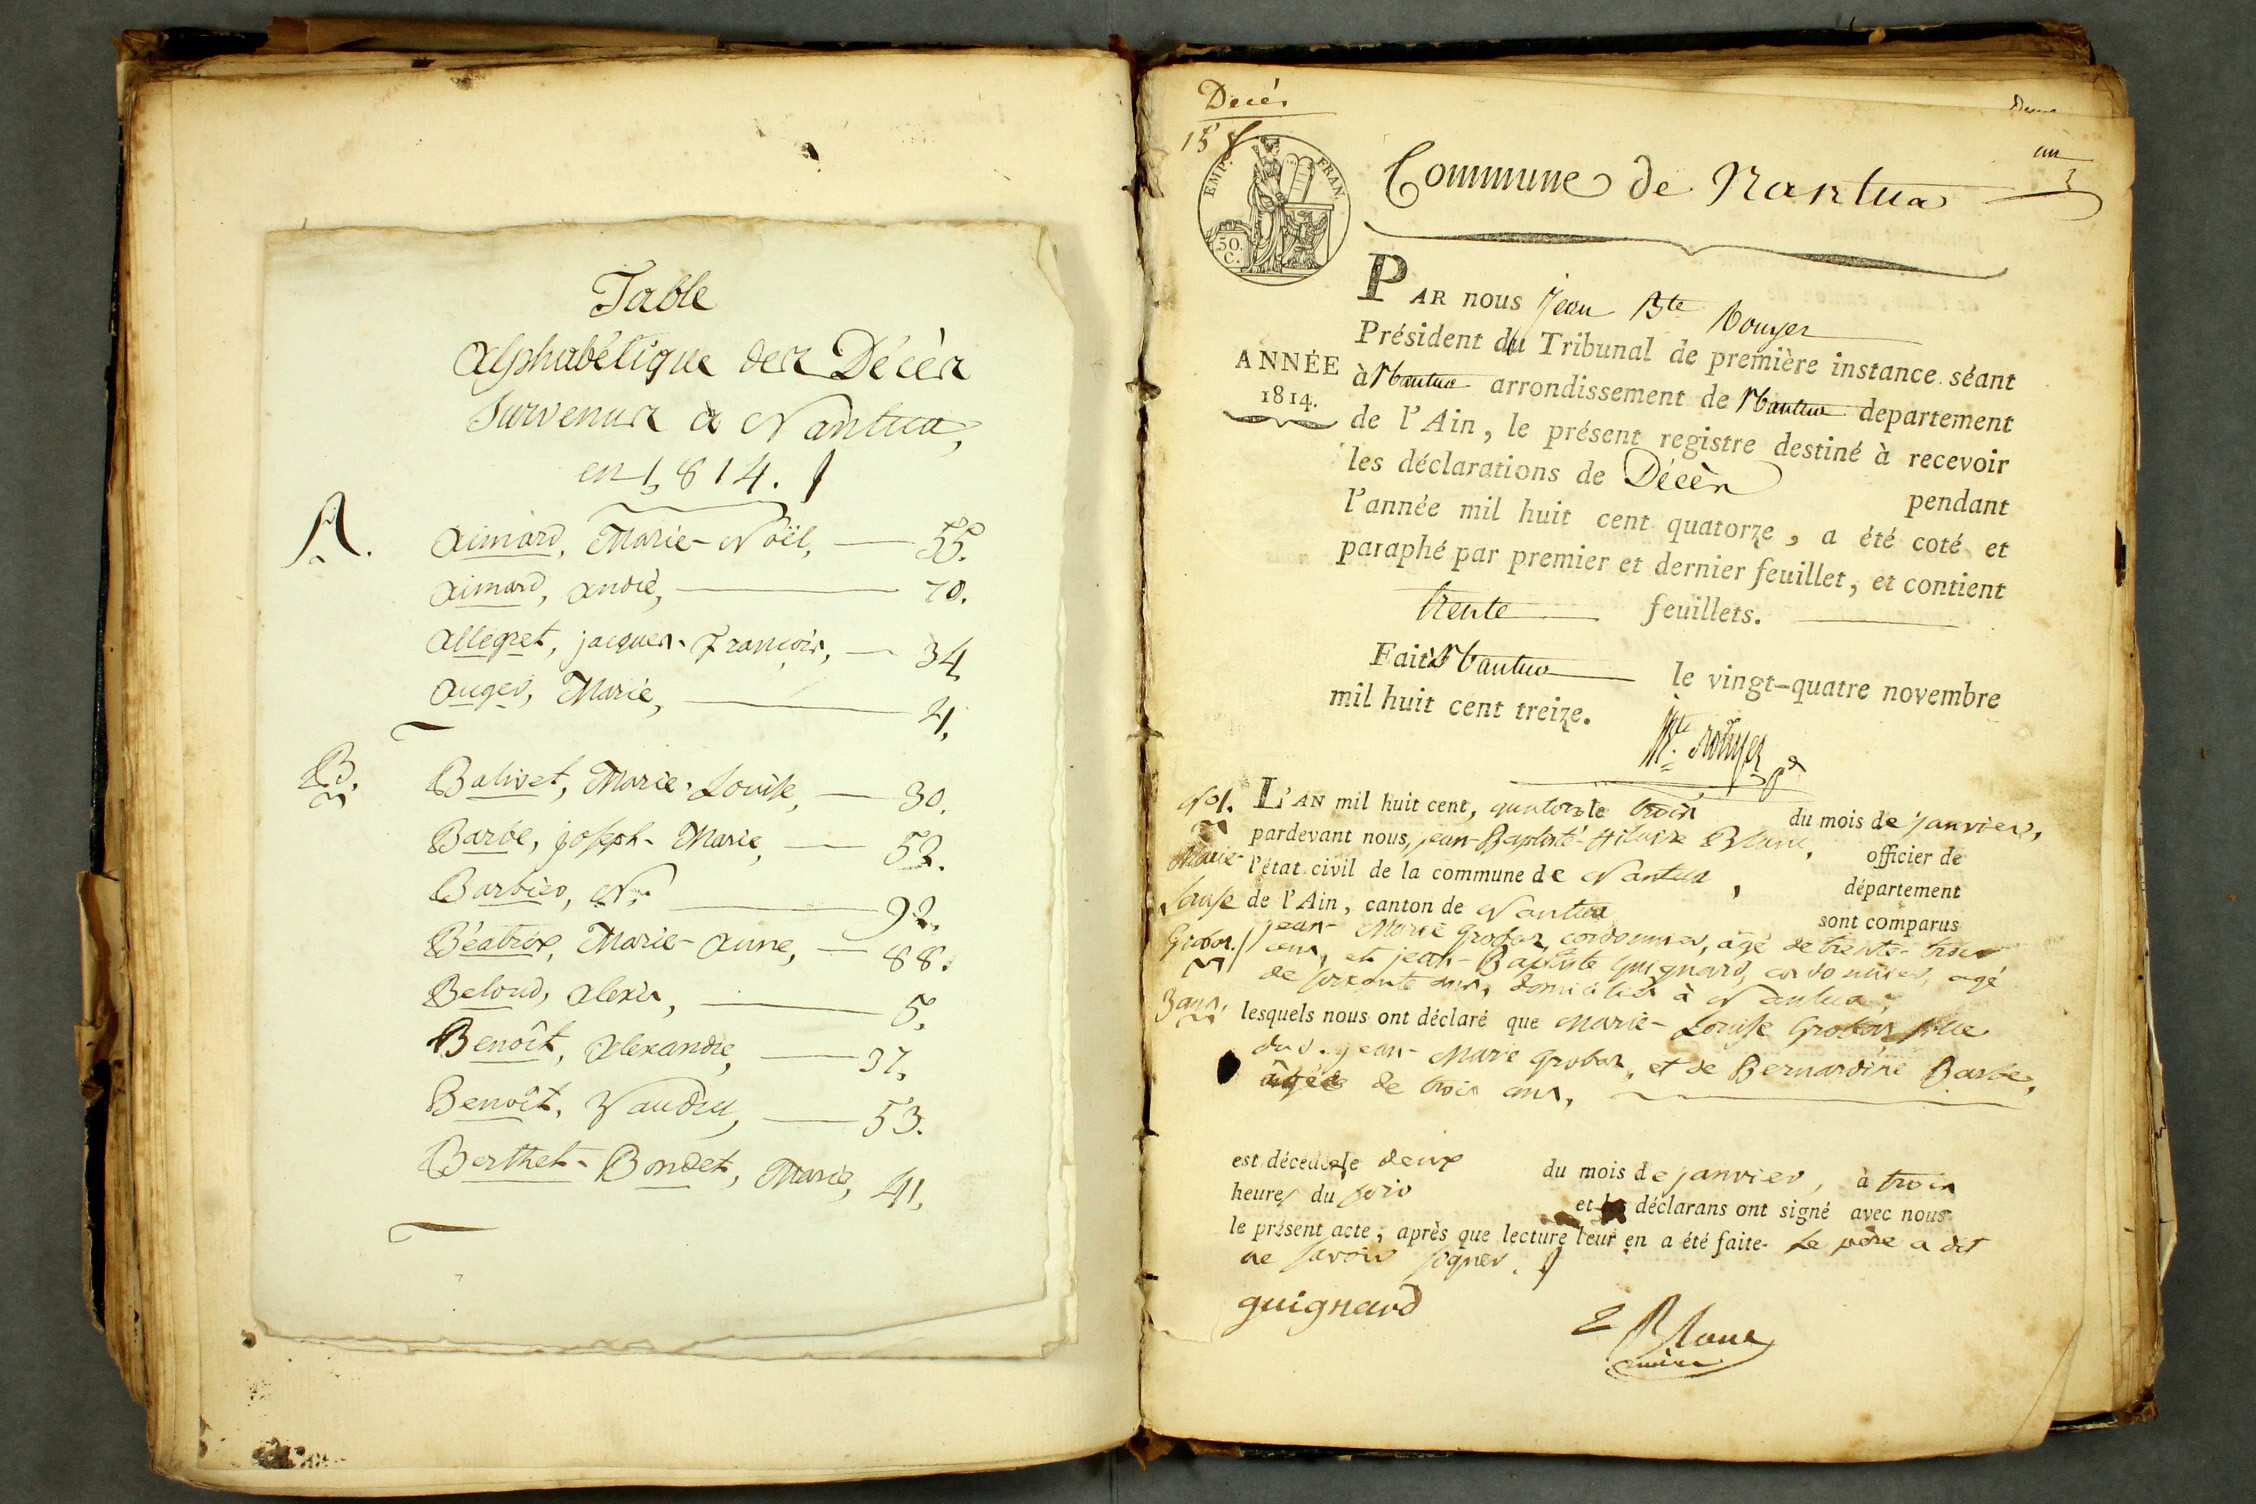 Table
alphabétique des Décès
survenus à Nantua,
en 1814.
A.
aimard, Marie-Noël, 55.
aimard, andré, 70.
allegret, jacques-François, 34,
auger, Marie, 4,
B.
Balivet, Marie-Louise, 30.
Barbe, joseph-Marie, 52.
Barbier, N. 92.
Béatrix, Marie-anne, 88.
Beloud, alexis, 5.
Benoît, alexandre, 37,
Benoît, 53.
Berthet-Bondet, Marie, 41,
Décès
15 f
EMP. FRAN.
50.
C.
un
Commune de Nantua
ANNÉE
1814.
PAR nous Jean Bte Rouyer
Président du Tribunal de première instance séant
à Nantua arrondissement de Nantua departement
de l'Ain, le présent registre destiné à recevoir
les déclarations de Décès pendant
l'année mil huit cent quatorze, a été coté et
paraphé par premier et dernier feuillet, et contient
trente feuillets.
Fait à Nantua le vingt-quatre novembre
mil huit cent treize.
Bte Rouyer
N°1.
Marie-
Louise
Grobas.
3 ans.
L'AN mil huit cent, quatorze le trois du mois de janvier,
pardevant nous, jean-Baptiste-Hilaire Blanc, officier de
l'état civil de la commune de Nantua, département
de l'Ain, canton de Nantua sont comparus
jean-Marie Grobas, cordonnier, âgé de trente-trois
ans, et jean-Baptiste Guignard, cordonnier, agé
de soixante ans, domiciliés à Nantua.
lesquels nous ont déclaré que Marie-Louise Grobas fille
dud. jean-Marie Grobas, et de Bernardine Barbe,
âgée de trois ans,
est décédée le deux du mois de janvier, à trois
heures du soir et les déclarans ont signé avec nous
le présent acte, après que lecture leur en a été faite. Le père a dit
ne savoir signer.
guignard
Blanc